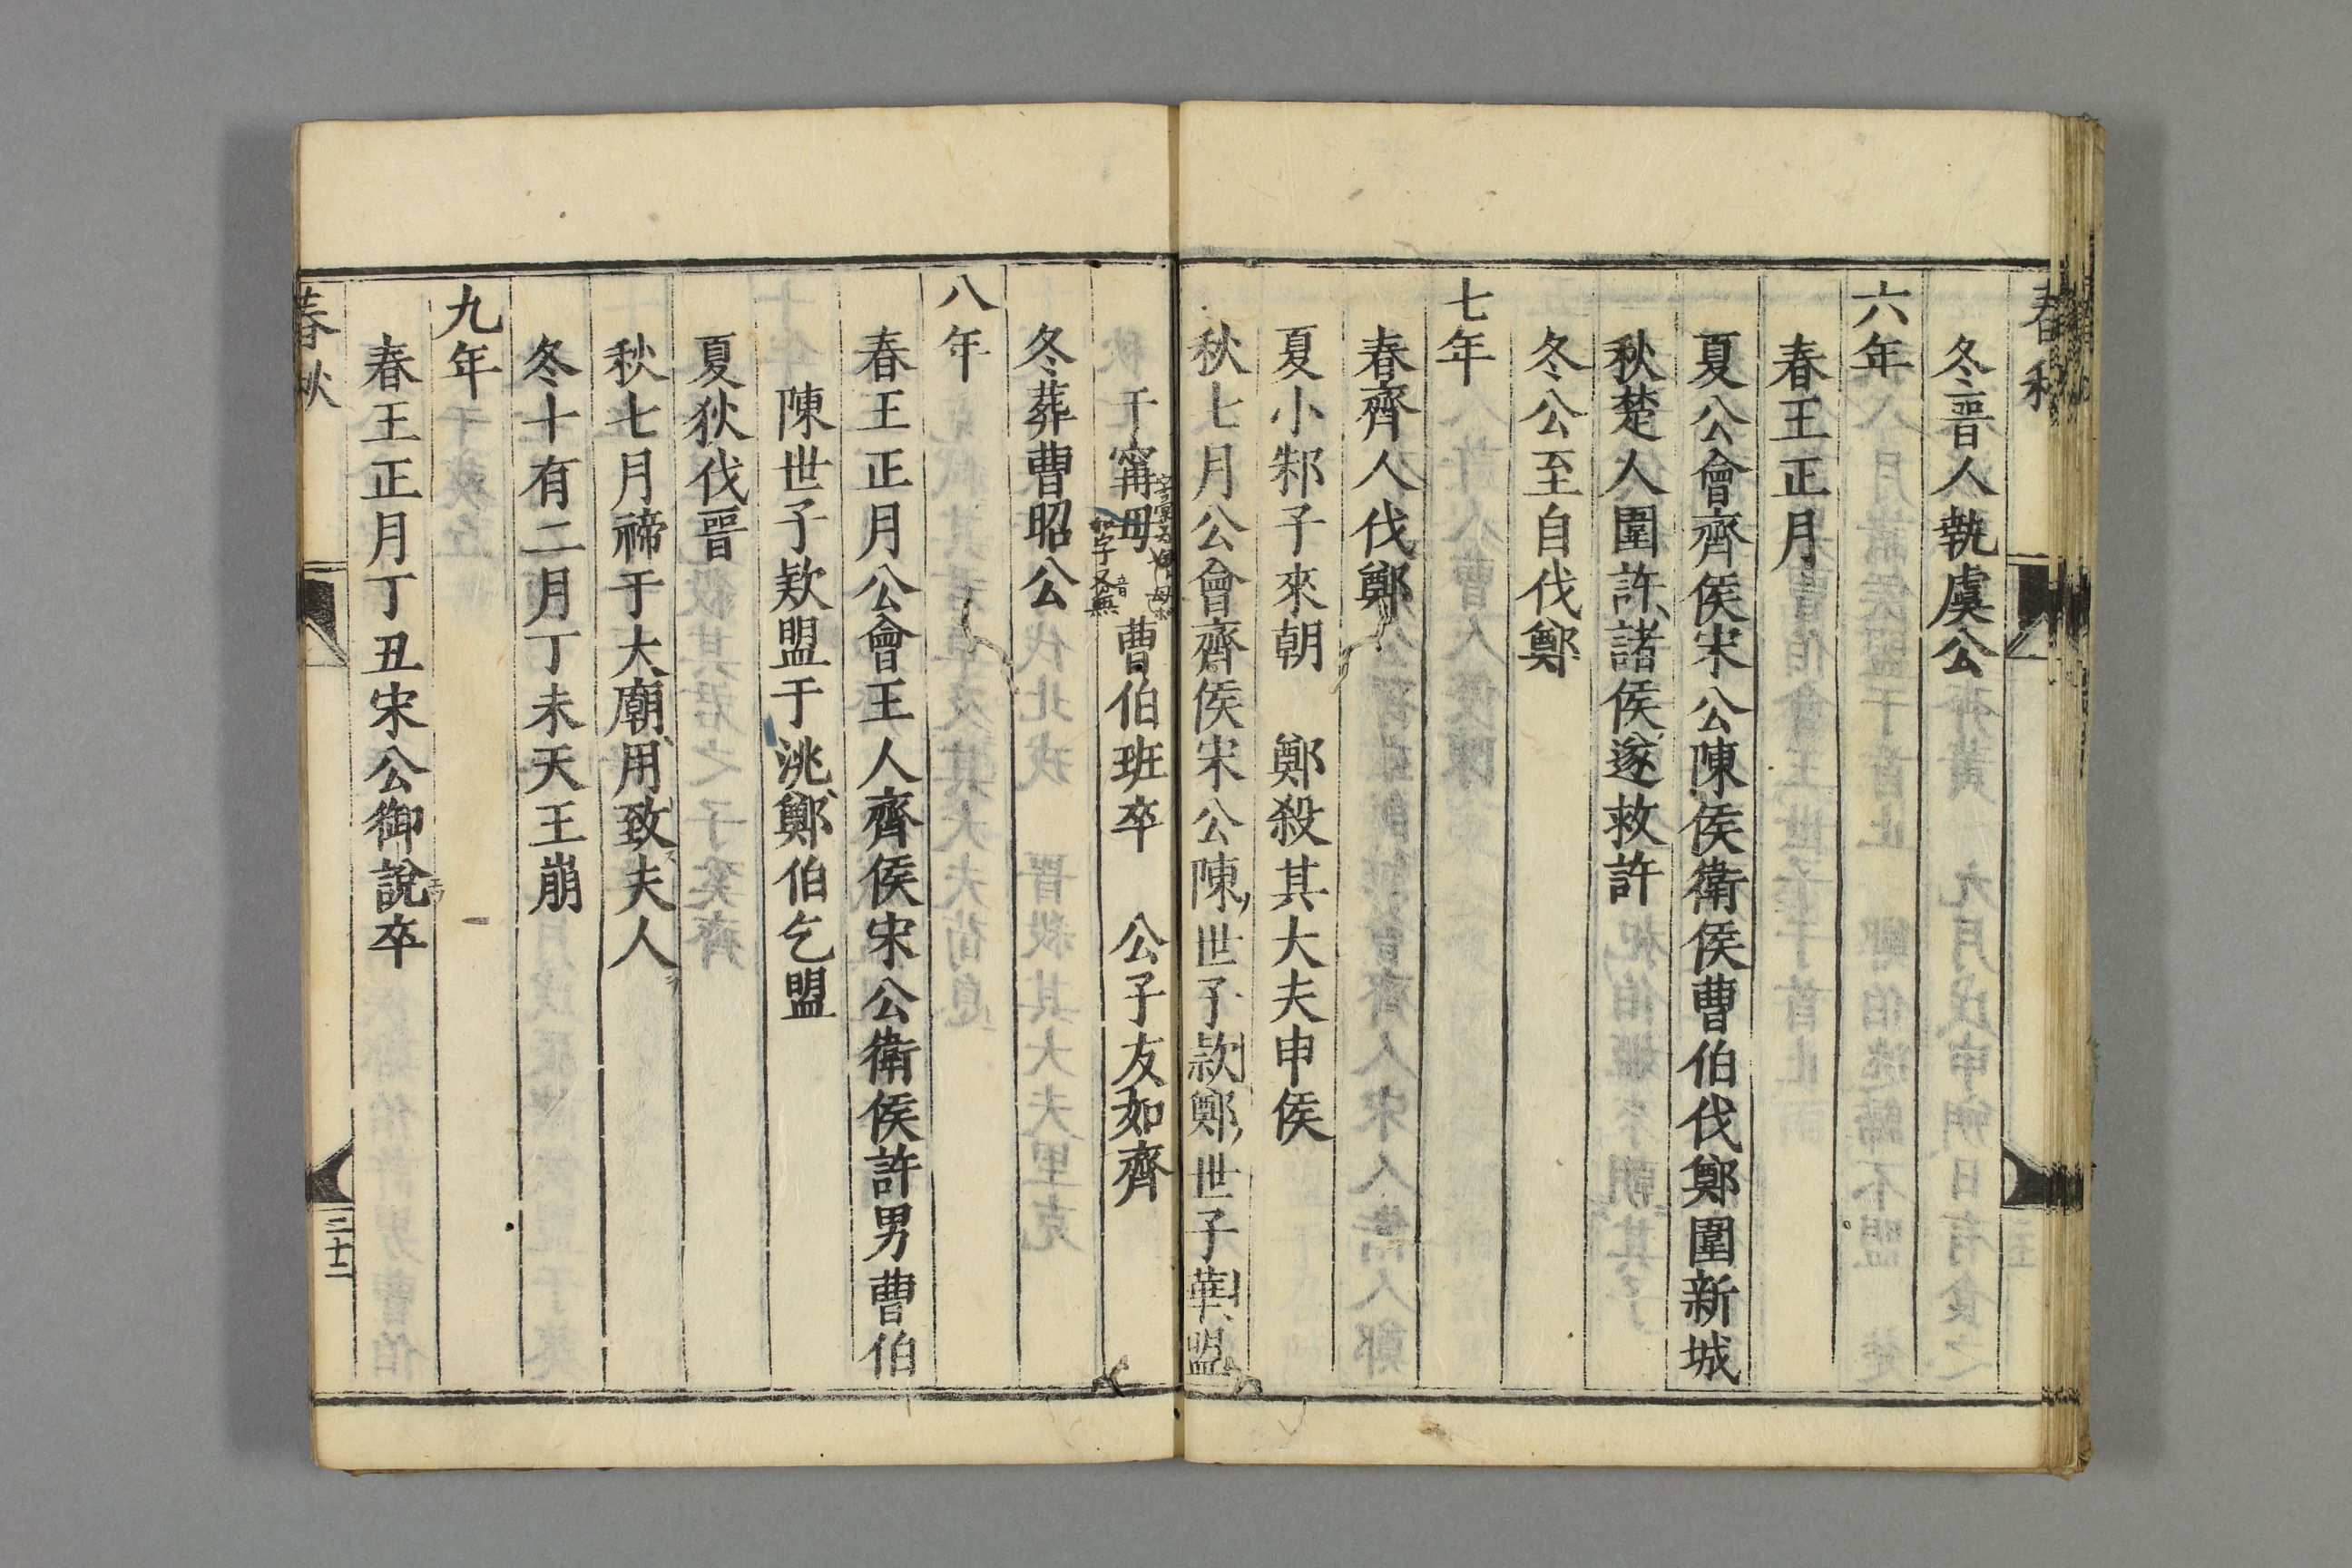 春秋
冬晉人執虞公
六年
春王正月
夏公會齊侯宋公陳侯衛侯曹伯伐鄭圍新城
秋楚人圍許諸侯遂救許
冬公至自伐鄭
七年
春齊人伐鄭
夏小邾子來朝　鄭殺其大夫申侯
秋七月公會齊侯宋公陳世子款鄭世子華盟
于甯毋曹伯班卒　公子友如齊
冬葬曹昭公
八年
春王正月公會王人齊侯宋公衛侯許男曹伯
陳世子款盟于洮鄭伯乞盟
夏狄伐晉
秋七月禘于大廟用致夫人
冬十有二月丁未天王崩
九年
春王正月丁丑宋公御說卒
春秋
三十二